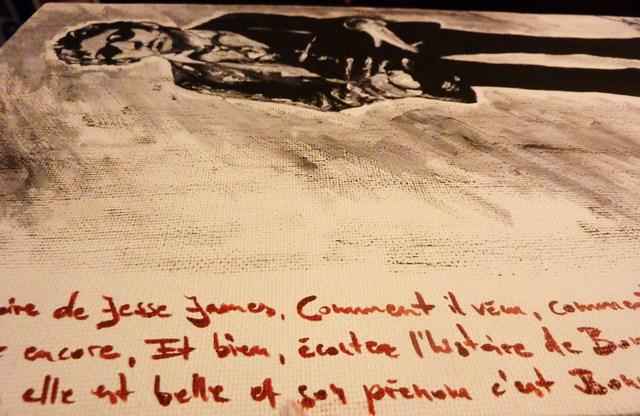 oire de Jesse James, Comment il vécu, commen
encore, Et bien, écoutez l'histoire de Bon
elle est belle et son prénom c'est Bon